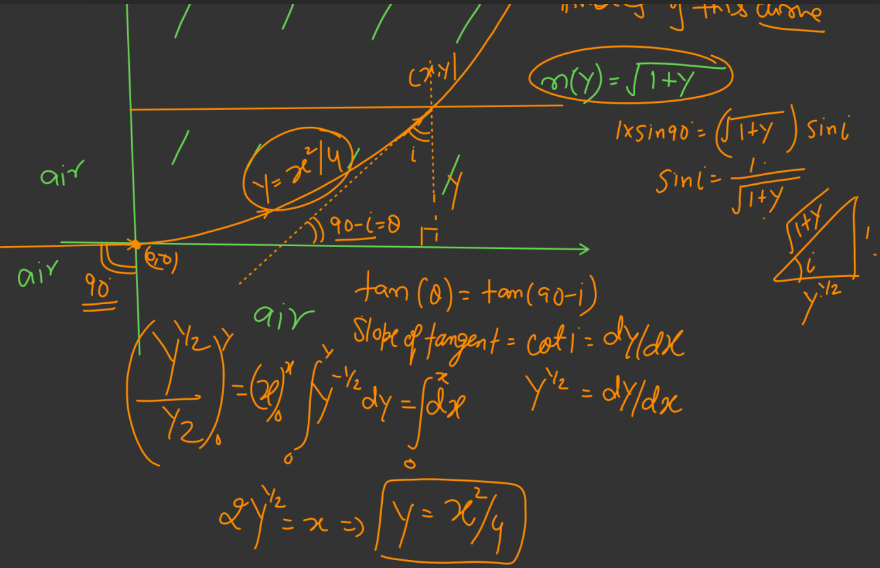 of this curve
(x,y)
n(y)=√1+y
1×sin90°=(√1+y) sini
sini=1/√1+y
√1+y
1
i
y^1/2
air
y=x²/4
i
y
90-i=θ
(0,0)
air
90°
air
tan(θ)=tan(90-i)
Slope of tangent = coti = dy/dx
(y^1/2/1/2)₀^y = (x)₀^x ∫₀^y y^-1/2 dy = ∫₀^x dx
y^1/2 = dy/dx
2y^1/2 = x => y = x²/4